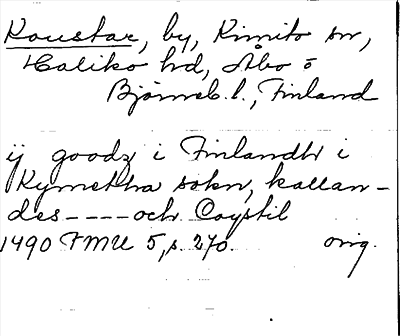 Koustar, by, Kimito sn,
Haliko hd, Åbo o
Björneb. l., Finland
ij goodz i Finlandh i
Kymettha sokn, kallan-
des----och Coystil
1490 FMU 5, s. 270. orig.